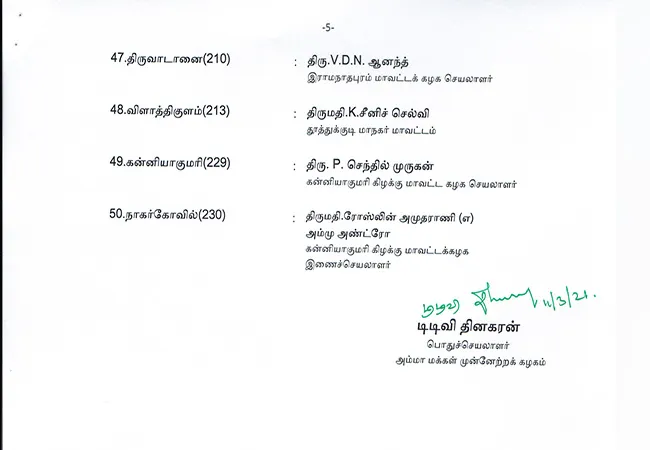 -5-
47.திருவாடானை(210) : திரு.V.D.N. ஆனந்த்
இராமநாதபுரம் மாவட்டக் கழக செயலாளர்
48.விளாத்திகுளம்(213) : திருமதி.K.சீனிச் செல்வி
தூத்துக்குடி மாநகர் மாவட்டம்
49.கன்னியாகுமரி(229) : திரு. P. செந்தில் முருகன்
கன்னியாகுமரி கிழக்கு மாவட்ட கழக செயலாளர்
50.நாகர்கோவில்(230) : திருமதி.ரோஸ்லின் அமுதராணி (எ)
அம்மு அண்ட்ரோ
கன்னியாகுமரி கிழக்கு மாவட்டக்கழக
இணைச்செயலாளர்
டிடிவி 11/3/21.
டிடிவி தினகரன்
பொதுச்செயலாளர்
அம்மா மக்கள் முன்னேற்றக் கழகம்